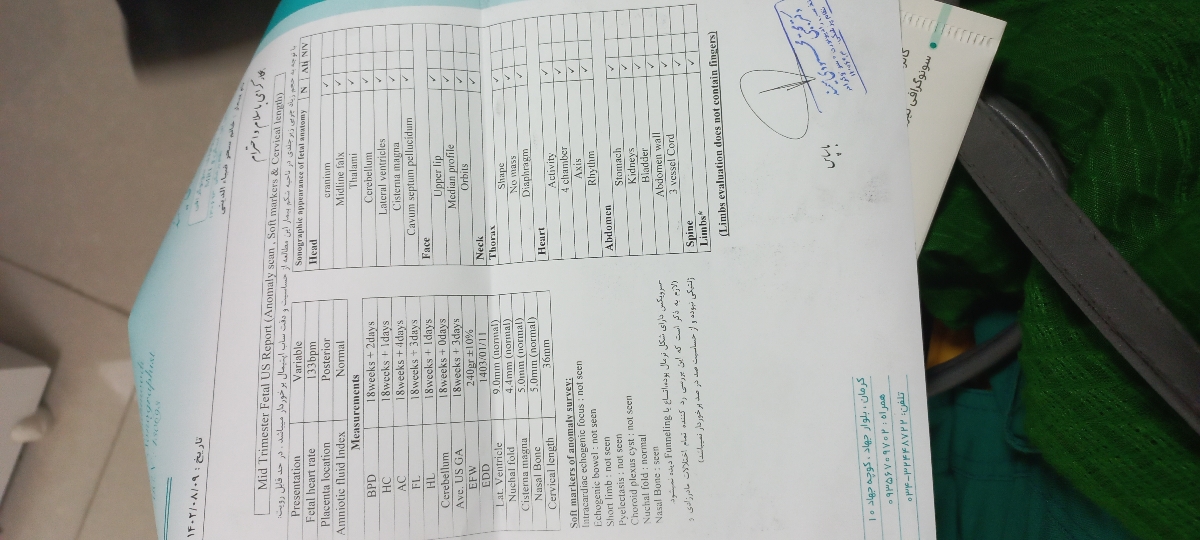 تاریخ : ۱۴۰۲/۰۸/۰۹
همکار گرامی با سلام و احترام
Mid Trimester Fetal US Report (Anomaly scan , Soft markers & Cervical length)
Presentation Variable
Fetal heart rate 133bpm
Placenta location Posterior
Amniotic fluid Index Normal
Measurements
BPD 18weeks + 2days
HC 18weeks + 1days
AC 18weeks + 4days
FL 18weeks + 3days
HL 18weeks + 1days
Cerebellum 18weeks + 0days
Ave. US GA 18weeks + 3days
EFW 240gr ±10%
EDD 1403/01/11
Lat. Ventricle 9.0mm (normal)
Nuchal fold 4.4mm (normal)
Cisterna magna 5.0mm (normal)
Nasal Bone 5.0mm (normal)
Cervical length 36mm
Soft markers of anomaly survey:
Intracardiac echogenic focus : not seen
Echogenic bowel : not seen
Short limb : not seen
Pyelectasis : not seen
Choroid plexus cyst : not seen
Nuchal fold : normal
Nasal Bone : seen
سرویکس دارای شکل نرمال بوده Funneling دیده نمیشود
(لازم به ذکر است که این بررسی رد کننده تمام اختلالات مادرزادی و
ژنتیکی نبوده و از حساسیت صد در صد برخوردار نمیباشد)
Sonographic appearance of fetal anatomy N AH N/V
Head
cranium ✓
Midline falx ✓
Thalami ✓
Cerebellum ✓
Lateral ventricles ✓
Cisterna magna ✓
Cavum septum pellucidum ✓
Face
Upper lip ✓
Median profile ✓
Orbits ✓
Neck ✓
Thorax
Shape ✓
No mass ✓
Diaphragm ✓
Heart
Activity ✓
4 chamber ✓
Axis ✓
Rhythm ✓
Abdomen
Stomach ✓
Kidneys ✓
Bladder ✓
Abdomen wall ✓
3 vessel Cord ✓
Spine ✓
Limbs*
(Limbs evaluation does not contain fingers)
با سپاس
کرمان ، بلوار جهاد ، کوچه جهاد ۱۰
همراه : ۰۹۳۵۶۷۰۹۷۰۲
تلفن: ۰۳۴-۳۲۴۴۸۷۲۲
سونوگرافی